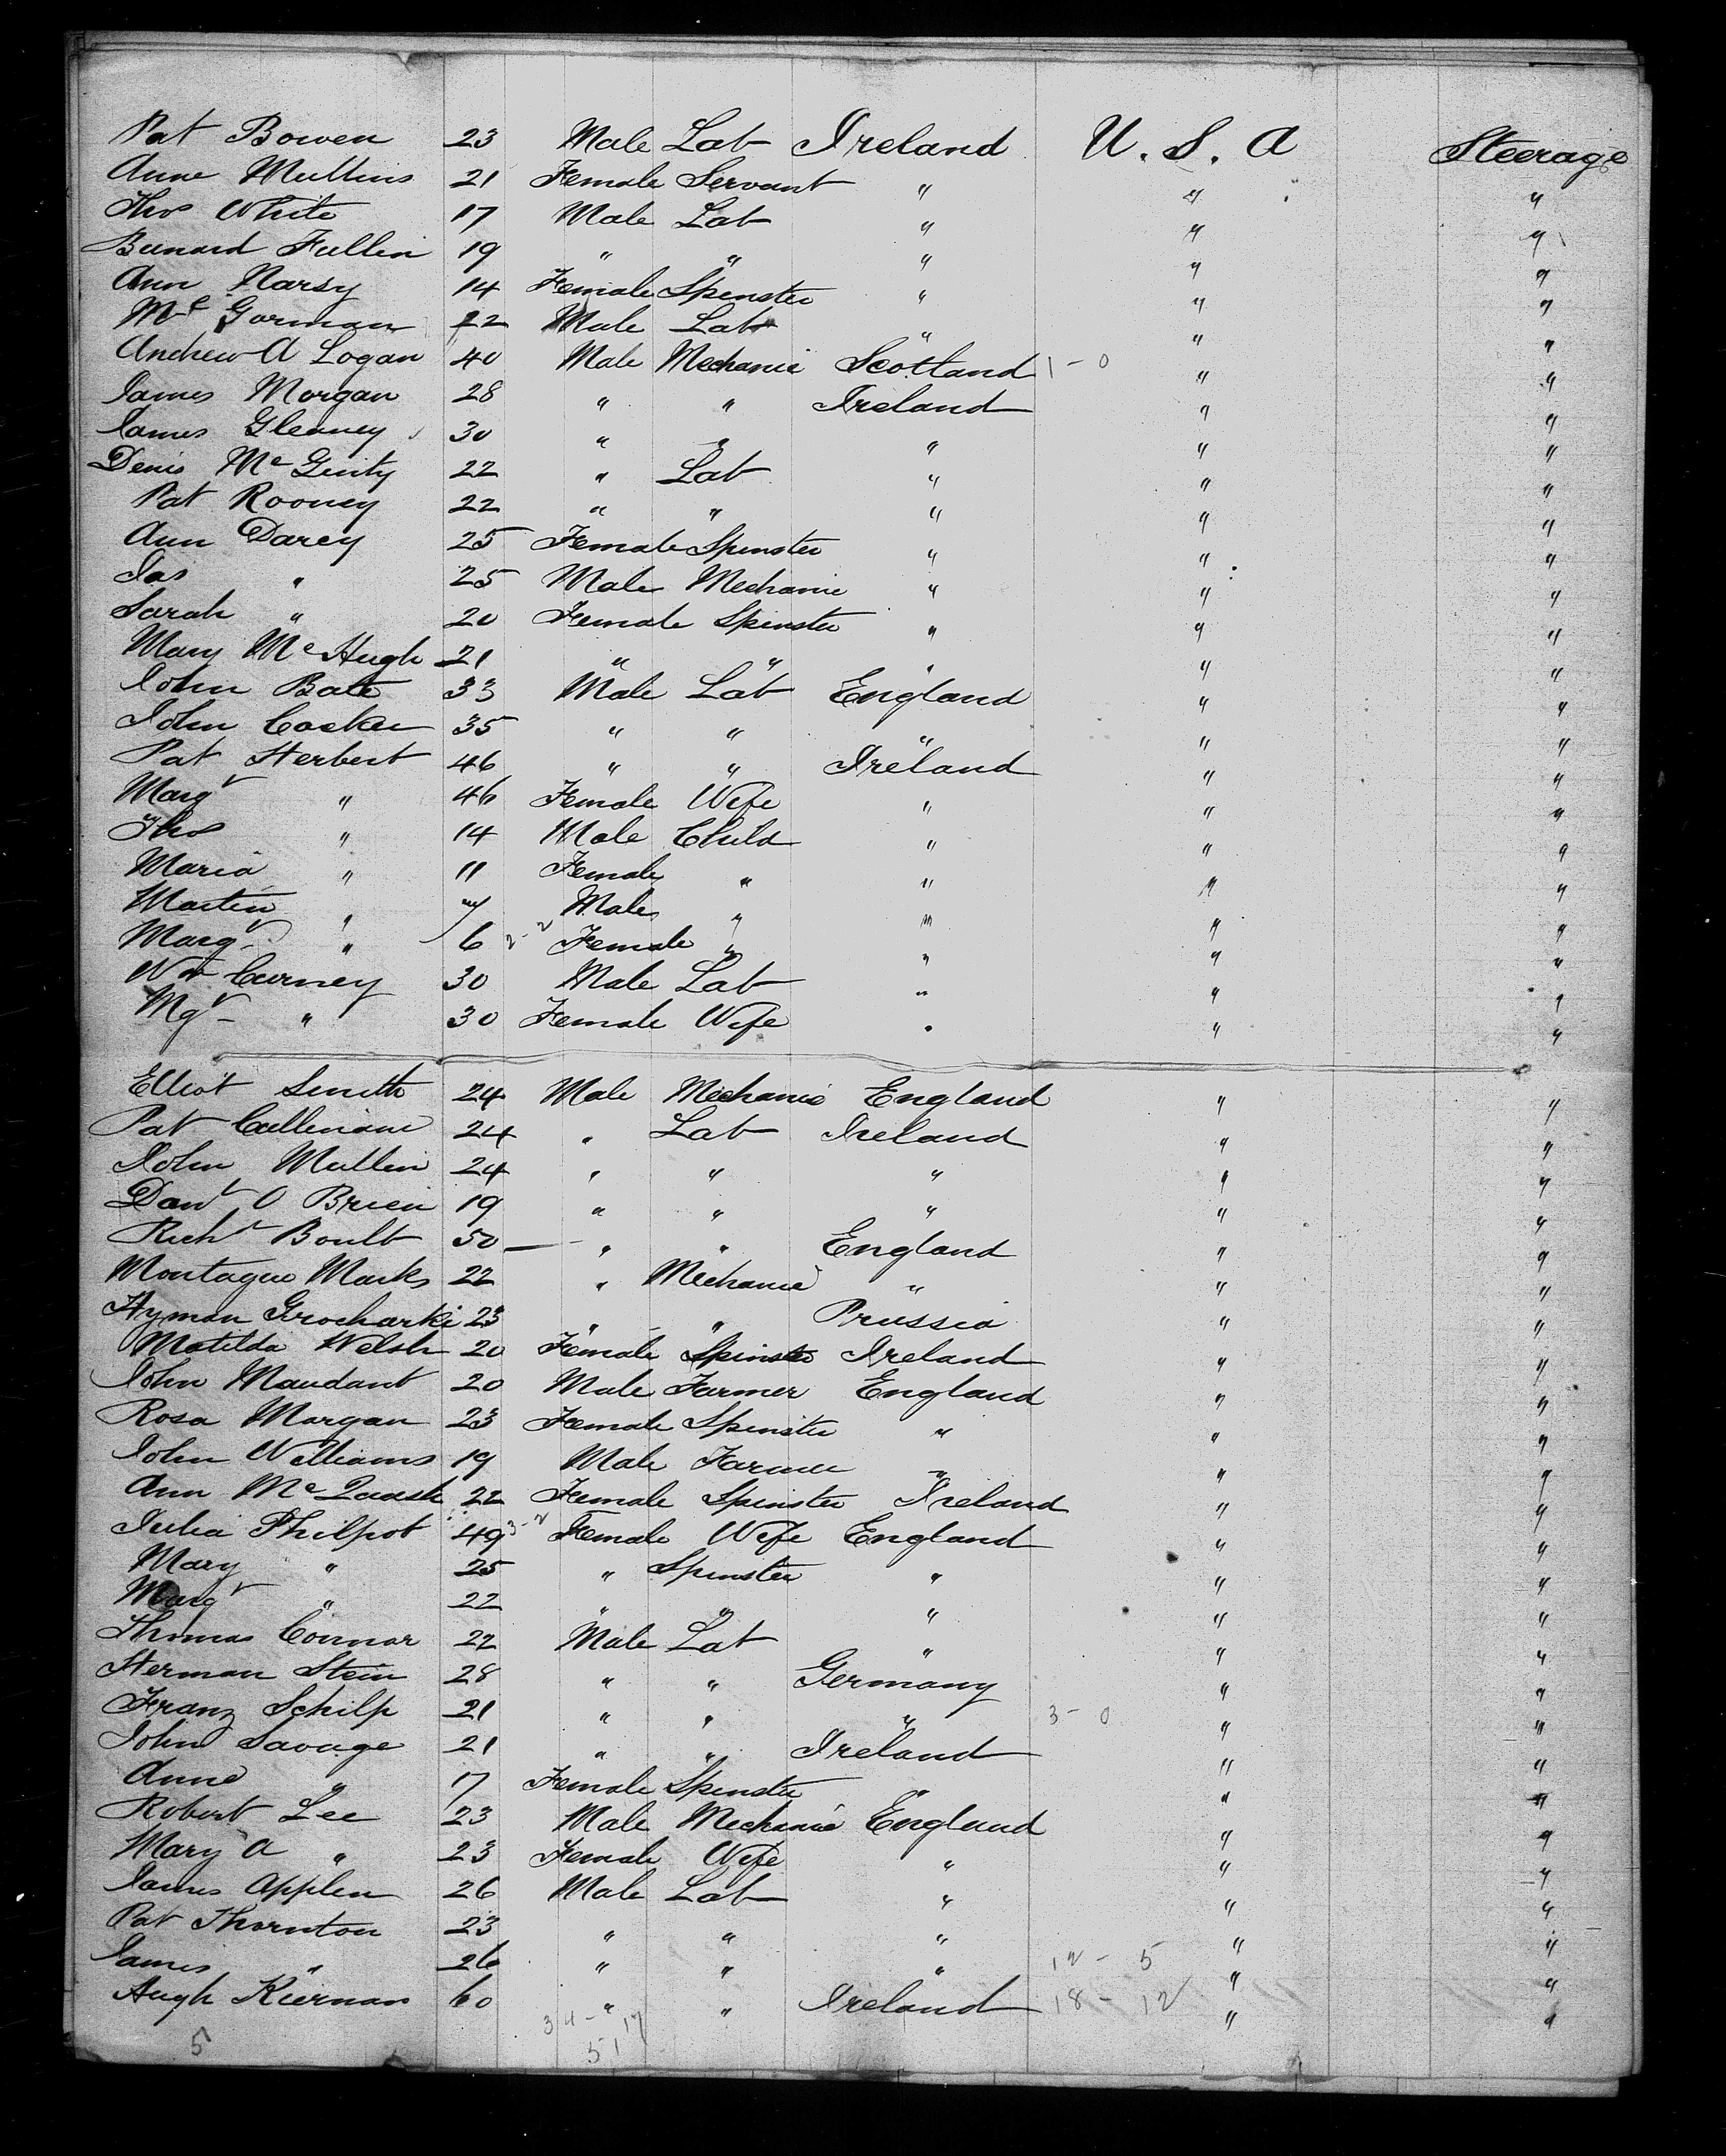 Pat Bowen 23 Male Lab Ireland U.S.A Steerage
Anne Mullins 21 Female Servant " " "
Thos White 17 Male Lab " " "
Bernard Fullin 19 " " " " "
Ann Narsy 14 Female Spinster " " "
Mc Gorman 22 Male Lab " " "
Andrew A Logan 40 Male Mechanic Scotland 1-0 " "
James Morgan 28 " " Ireland " "
James Gleaney 30 " " " " "
Denis Mc Ginty 22 " Lab " " "
Pat Rooney 22 " " " " "
Ann Darcy 25 Female Spinster " " "
Jas " 25 Male Mechanic " " "
Sarah " 20 Female Spinster " " "
Mary Mc Hugh 21 " " " " "
John Bate 33 Male Lab England " "
John Cocker 35 " " " " "
Pat Herbert 46 " " Ireland " "
Margt " 46 Female Wife " " "
Thos " 14 Male Child " " "
Maria " 11 Female " " " "
Martin " 7 Male " " " "
Margt " 6 2-2 Female " " " "
Wm Curney 30 Male Lab " " "
Mgt " 30 Female Wife " " "
Elliot Smith 24 Male Mechanic England " "
Pat Cullinane 24 " Lab Ireland " "
John Mullin 24 " " " " "
Danl O Brien 19 " " " " "
Richd Boult 50 " " England " "
Montague Marks 22 " Mechanic " " "
Hyman Grocharki 23 " " Prussia " "
Matilda Welsh 20 Female Spinster Ireland " "
John Maudant 20 Male Farmer England " "
Rosa Morgan 23 Female Spinster " " "
John Williams 19 Male Farmer " " "
Ann Mc 22 Female Spinster Ireland " "
Julia Philpot 49 3-2 Female Wife England " "
Mary " 25 " Spinster " " "
Margt " 22 " " " " "
Thomas Connor 22 Male Lab " " "
Herman Stein 28 " " Germany " "
Franz Schilp 21 " " " 3-0 " "
John Savage 21 " " Ireland " "
Anne " 17 Female Spinster " " "
Robert Lee 23 Male Mechanic England " "
Mary A " 23 Female Wife " " "
James Applen 26 Male Lab " " "
Pat Thornton 23 " " " " "
James " 26 " " " 12-5 " "
Hugh Kiernan 60 " " Ireland 18-12 " "
34-17
5 51